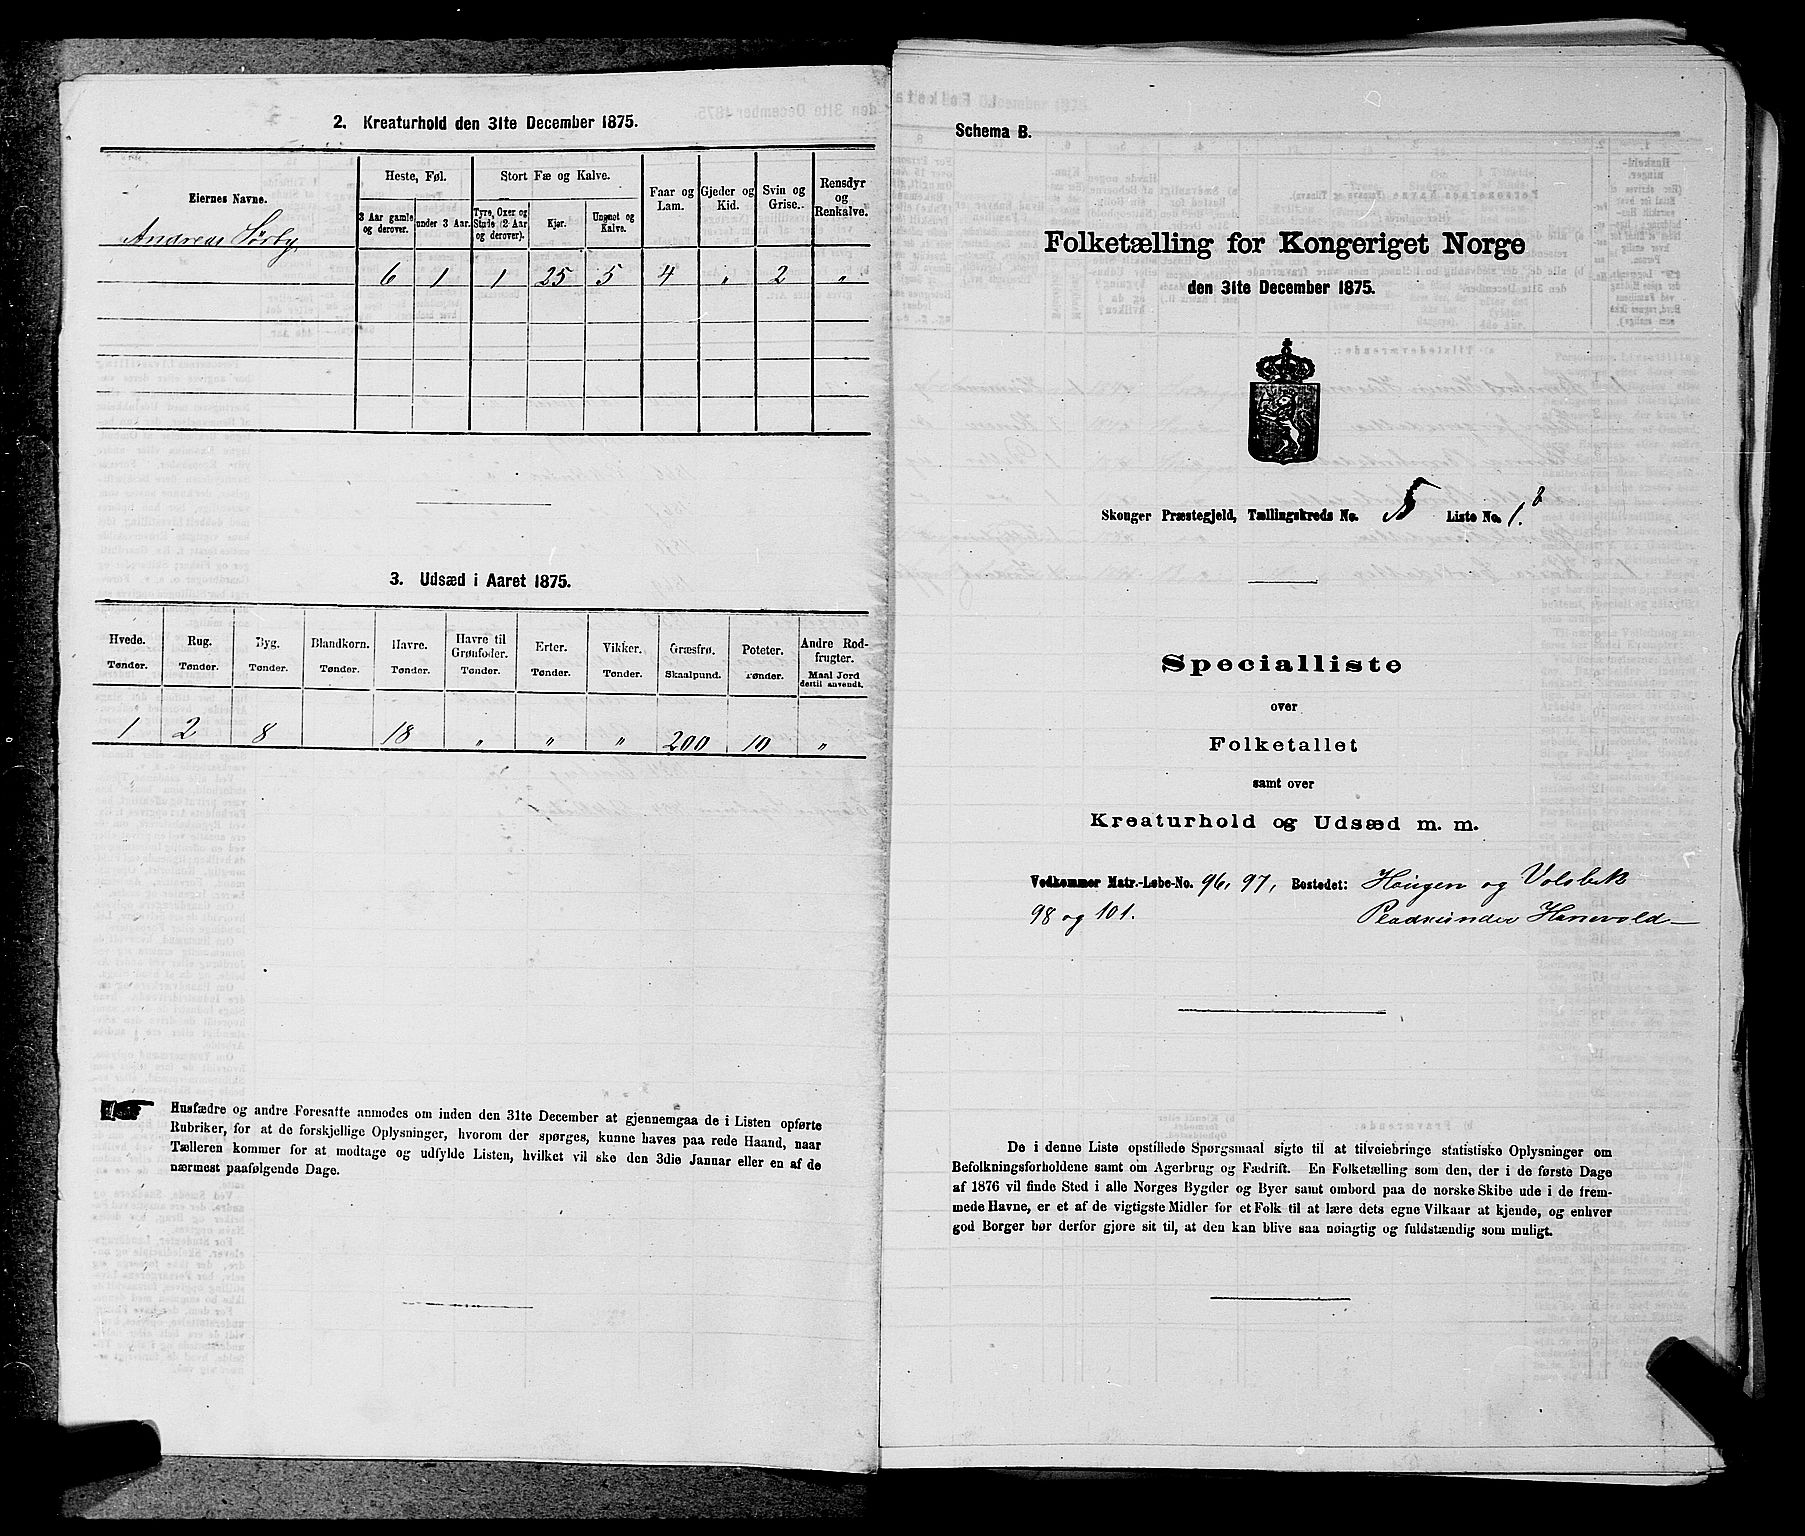 2. Kreaturhold den 31te December 1875.
Eiernes Navne.
Heste, Føl.
Stort Fæ og Kalve.
Faar og Lam.
Gjeder og Kid.
Svin og Grise.
Rensdyr og Renkalve.
3 Aar gamle og derover.
under 3 Aar.
Tyre, Oxer og Stude (2 Aar og derover).
Kjør.
Ungnøt og Kalve.
Andreas Sørby
6 1 1 25 5 4 " 2 "
3. Udsæd i Aaret 1875.
Hvede. Rug. Byg. Blandkorn. Havre. Havre til Grønfoder. Erter. Vikker. Græsfrø. Poteter. Andre Rodfrugter.
Tønder. Tønder. Tønder. Tønder. Tønder. Tønder. Tønder. Tønder. Skaalpund. Tønder. Maal Jord dertil anvendt.
1 2 8 18 " " " 200 10 "
Husfædre og andre Foresatte anmodes om inden den 31te December at gjennemgaa de i Listen opførte
Rubriker, for at de forskjellige Oplysninger, hvorom der spørges, kunne haves paa rede Haand, naar
Tælleren kommer for at modtage og udfylde Listen, hvilket vil ske den 3die Januar eller en af de
nærmest paafølgende Dage.
Schema B.
Folketælling for Kongeriget Norge
den 31te December 1875.
Skonger Præstegjeld, Tællingskreds No. 5 Liste No. 1.
Specialliste
over
Folketallet
samt over
Kreaturhold og Udsæd m. m.
Vedkommer Matr.-Løbe-No. 96, 97, Bostedet: Haugen og Volsbek
98 og 101. Pladsunder Hanevold
De i denne Liste opstillede Spørgsmaal sigte til at tilveiebringe statistiske Oplysninger om
Befolkningsforholdene samt om Agerbrug og Fædrift. En Folketælling som den, der i de første Dage
af 1876 vil finde Sted i alle Norges Bygder og Byer samt ombord paa de norske Skibe ude i de frem-
mede Havne, er et af de vigtigste Midler for et Folk til at lære dets egne Vilkaar at kjende, og enhver
god Borger bør derfor gjøre sit til, at den kan blive saa nøiagtig og fuldstændig som muligt.